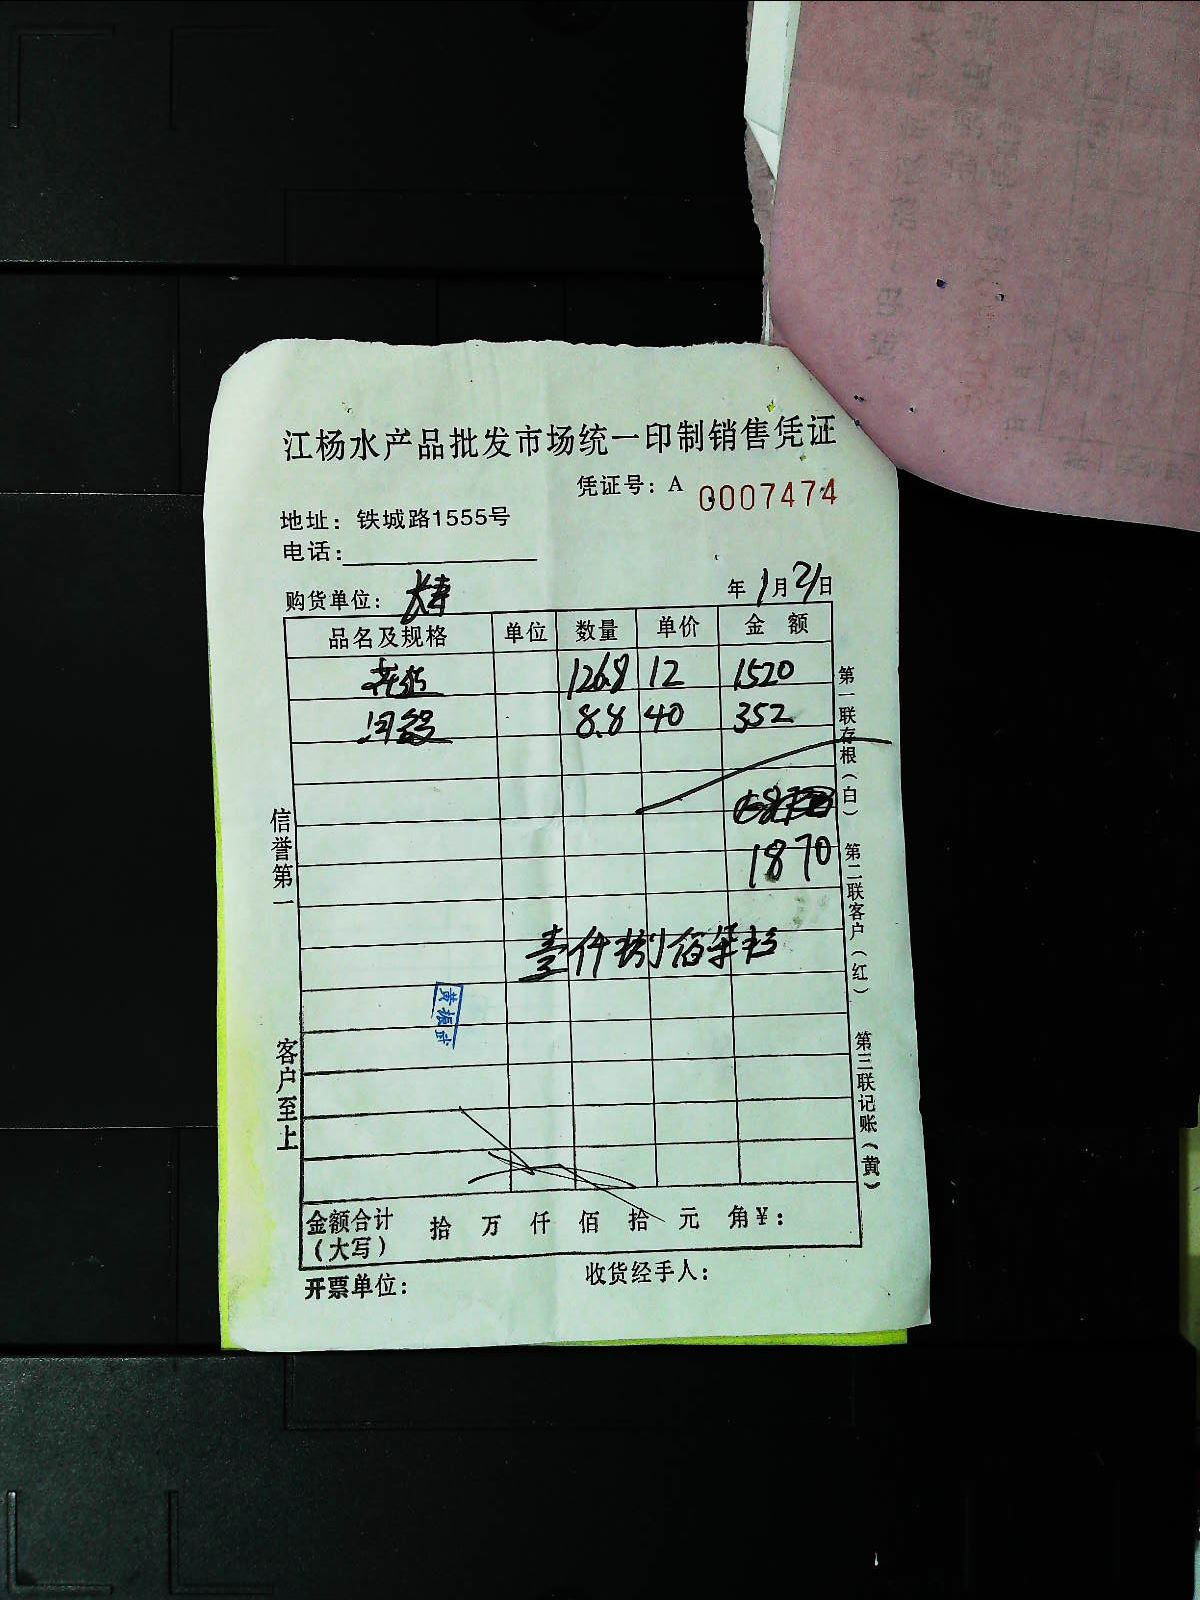 江杨水产品批发市场统一印制销售凭证
凭证号：A 0007474
地址：铁城路1555号
电话：
购货单位： 年1月21日
品名及规格 单位 数量 单价 金 额
126.8 12 1520
8.8 40 352
1870
壹仟捌佰柒拾
信誉第一
客户至上
第一联存根（白）
第二联客户（红）
第三联记账（黄）
金额合计（大写） 拾 万 仟 佰 拾 元 角￥：
开票单位： 收货经手人：